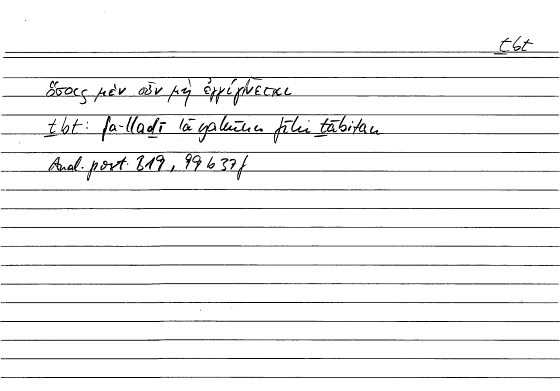 ṯbt
ὅσοις μὲν οὖν μὴ ἐγγίγνεται
ṯbt: fa-llaḏī lā yakūnu fīhi ṯābitan
Anal. post. B19, 99b37f